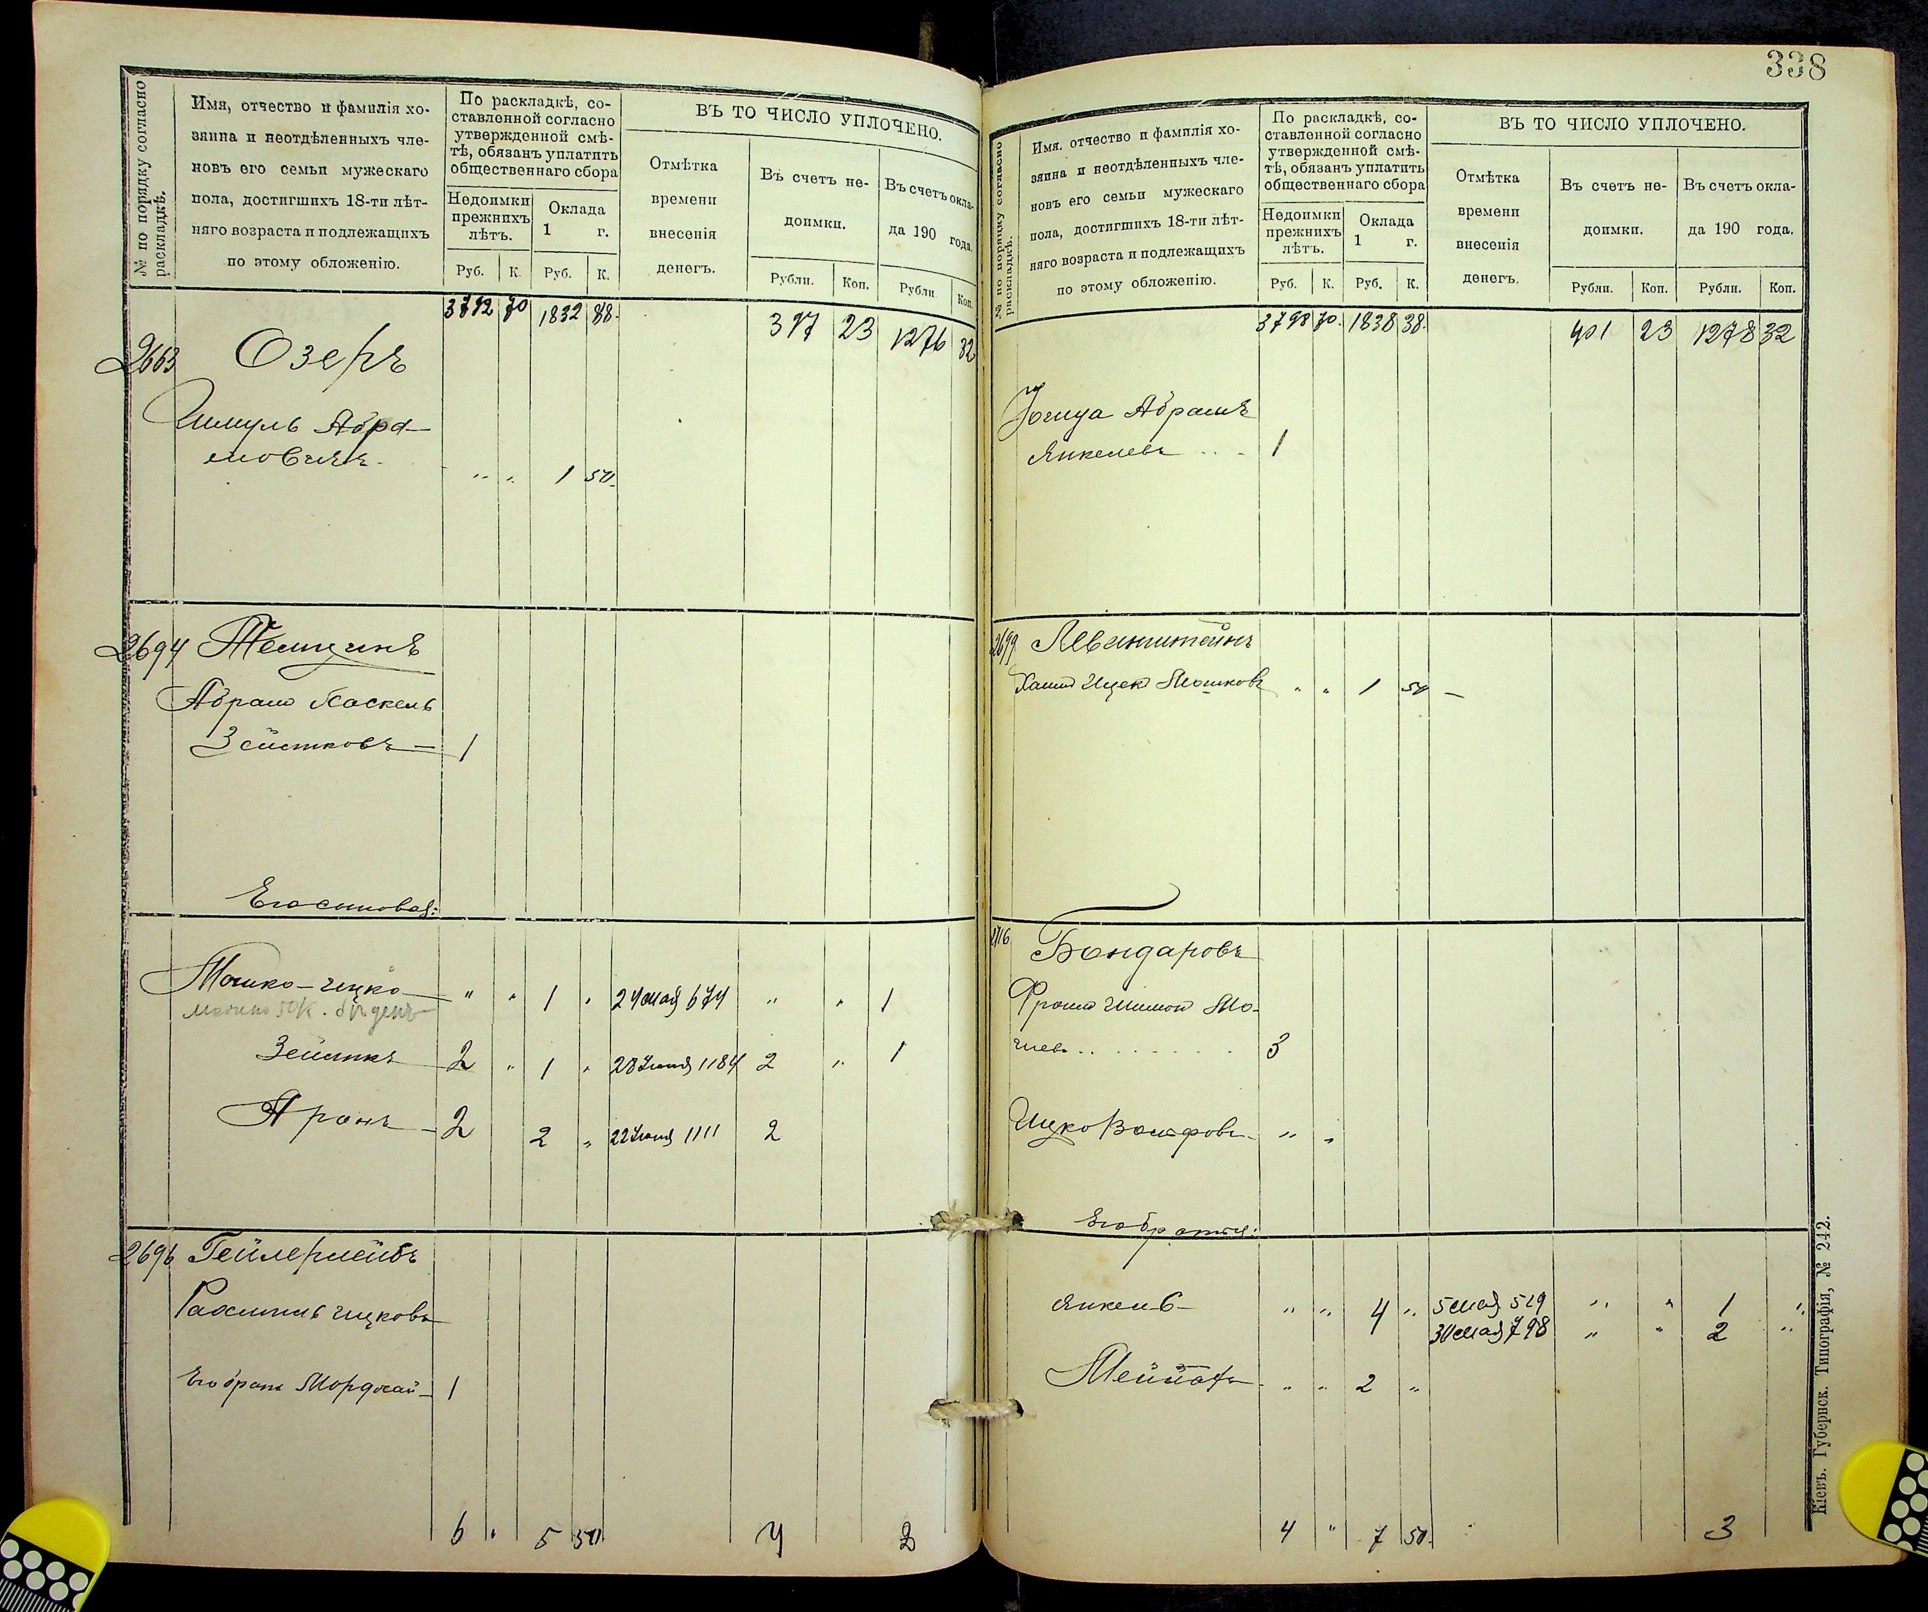 338
№ по порядку согласно
раскладкѣ.
Имя, отчество и фамилія хо-
зяина и неотдѣленныхъ чле-
новъ его семьи мужескаго
пола, достигшихъ 18-ти лѣт-
няго возраста и подлежащихъ
по этому обложенію.
По раскладкѣ, со-
ставленной согласно
утвержденной смѣ-
тѣ, обязанъ уплатить
общественнаго сбора
Недоимки
прежнихъ
лѣтъ.
Оклада
1 г.
Руб. К. Руб. К.
ВЪ ТО ЧИСЛО УПЛОЧЕНО.
Отмѣтка
времени
внесенія
денегъ.
Въ счетъ не-
доимки.
Рубли. Коп.
Въ счетъ окла-
да 190 года.
Рубли Коп.
3792 70 1832 88 397 23 1276 32
2663 Озеръ
Шмуль Абра-
мовичъ „ „ 1 50
2694 Темкинъ
Абрам Хаскель
Зейликовъ — 1
Его сыновья:
Мошко-Ицко — „ „ 1 „ 24 мая 674 „ „ 1
Зейликъ 2 „ 1 „ 28 Іюня 1184 2 „ 1
Аронъ — 2 2 „ 22 Іюня 1111 2
2696 Гейлерлейбъ
Ицковъ
Его братъ Мордхай — 1
6 „ 5 50 4 2
№ по порядку согласно
раскладкѣ.
Имя, отчество и фамилія хо-
зяина и неотдѣленныхъ чле-
новъ его семьи мужескаго
пола, достигшихъ 18-ти лѣт-
няго возраста и подлежащихъ
по этому обложенію.
По раскладкѣ, со-
ставленной согласно
утвержденной смѣ-
тѣ, обязанъ уплатить
общественнаго сбора
Недоимки
прежнихъ
лѣтъ.
Оклада
1 г.
Руб. К. Руб. К.
ВЪ ТО ЧИСЛО УПЛОЧЕНО.
Отмѣтка
времени
внесенія
денегъ.
Въ счетъ не-
доимки.
Рубли. Коп.
Въ счетъ окла-
да 190 года.
Рубли. Коп.
3798 70 1838 38 401 23 1278 32
Іошуа Абрамъ
Янкелевъ . . . 1
2699 Левинштейнъ
Хаим Ицек Мошковъ „ „ 1 50 —
2716 Бондаровъ
Фроим Шимон Мо-
3
Ицко Волфовъ „ „
Его братья:
Янкель — „ „ 4 „ 5 мая 519 „ „ 1 „
30 мая 798 „ „ 2 „
„ „ 2 „
4 „ 7 50 3
Кіевъ. Губернск. Типографія, № 242.